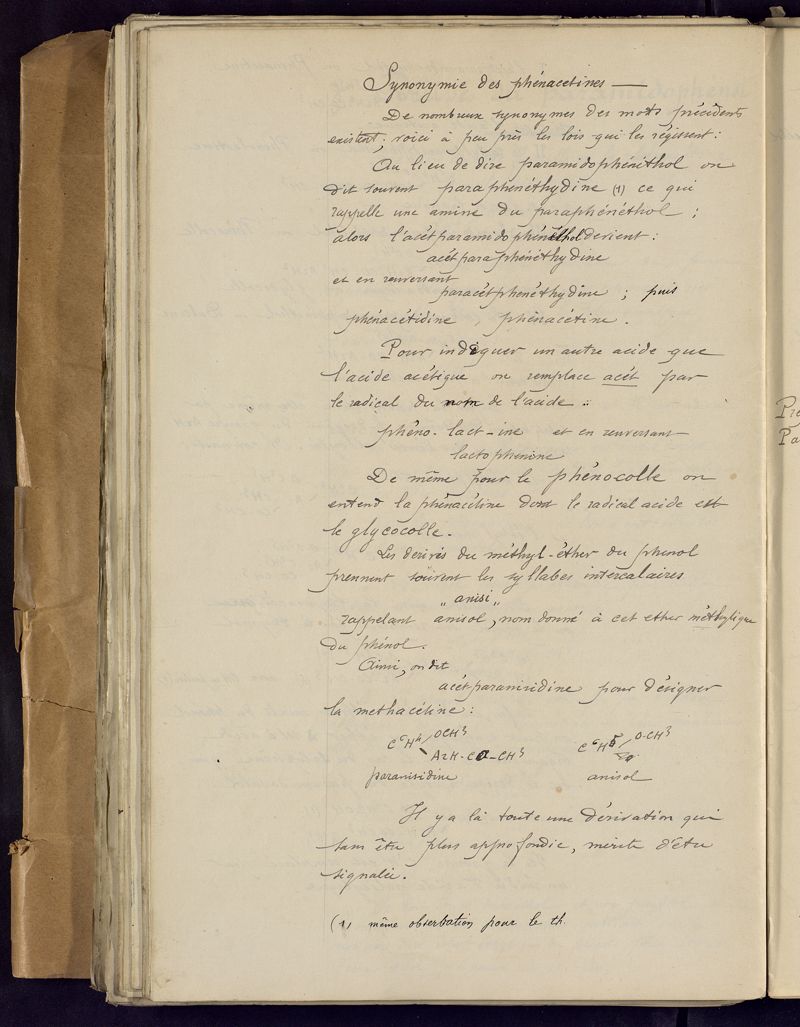 Synonymie des phénacétines —
De nombreux synonymes des mots précédents
existent; voici à peu près les lois qui les régissent:
Au lieu de dire paramidophénéthol on
dit souvent paraphénéthydine (1) ce qui
rappelle une amine du paraphénéthol ;
alors l'acétparamidophénéthol devient:
acétparaphénéthydine
et en renversant
paracétphenéthydine ; puis
phénacétidine, phénacétine.
Pour indiquer un autre acide que
l'acide acétique on remplace acét par
le radical du nom de l'acide :
phéno-lact-ine et en renversant
lactophenine
De même pour le phénocolle on
entend la phénacétine dont le radical acide est
le glycocolle.
Les dérivés du méthyl-éther du phenol
prennent souvent les syllabes intercalaires
„anisi„
rappelant anisol, nom donné à cet ether méthylique
du phénol.
Ainsi, on dit
acétparanisidine pour désigner
la methacétine:
C⁶H⁴/OCH³ C⁶H⁵/O-CH³
\AzH-CO-CH³
paranisidine anisol
Il y a là toute une dérivation qui
sans être plus approfondie, mérite d'être
signalée.
(1) même observation pour le th.
Pa